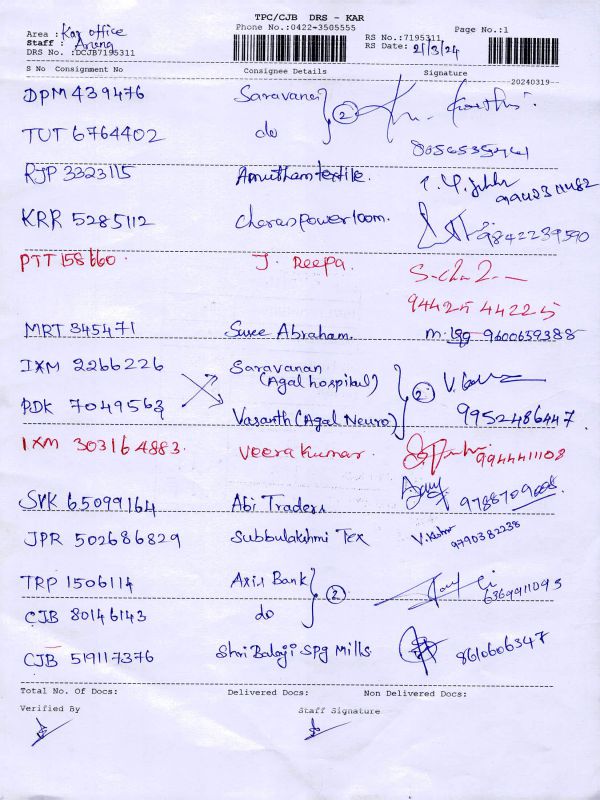 TPC/CJB DRS - KAR
Phone No.:0422-3505555
Page No.:1
Area : Kar office
RS No.:7195311
Staff : Aruna
RS Date: 21/3/24
DRS No. :DCJB7195311
S No Consignment No Consignee Details Signature
20240319--
DPM 439476 Saravanan
TUT 6764402 do } 2
8056535461
RJP 3323115 Amutham textile.
KRR 5285112 Cheran powerloom. 9842239590
PTT 158660. J. Reepa.
94425 44225
MRT 345471 Suree Abraham. 9600659388
IXM 2266226 Saravanan
(Agal hospital)
PDK 7049563 Vasanth (Agal Neuro) } 2 9952486447.
IXM 303164883. Veera Kumar. 9944411108
SVK 65099164 Abi Traders
JPR 502686829 Subbulakshmi Tex V.Kumar 9790382238
TRP 1506114 Axis Bank
CJB 80146143 do } 2 6369911095
CJB 519117376 Shri Balaji Spg Mills 8610606347
Total No. Of Docs: Delivered Docs: Non Delivered Docs:
Verified By Staff Signature